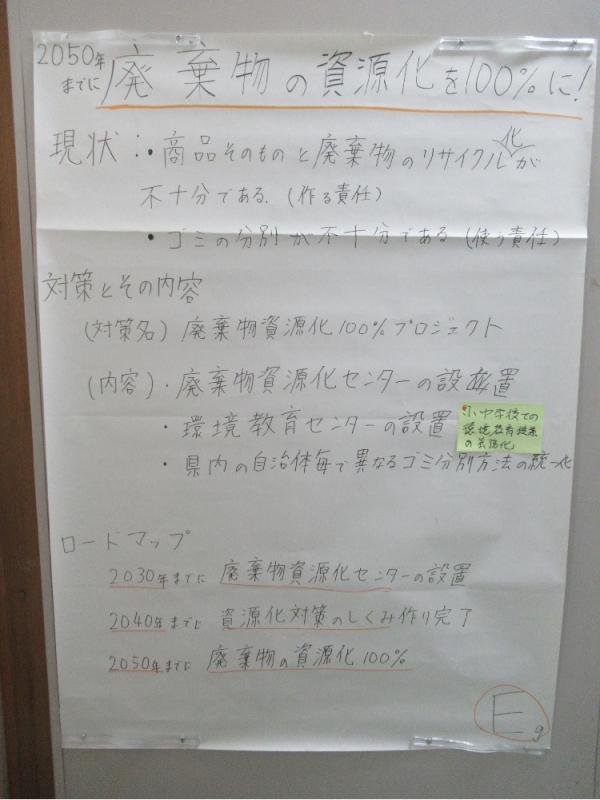 2050年までに 廃棄物の資源化を100%に!
現状:・商品そのものと廃棄物のリサイクル化が
不十分である.(作る責任)
・ゴミの分別が不十分である(使う責任)
対策とその内容
(対策名)廃棄物資源化100%プロジェクト
(内容)・廃棄物資源化センターの設置
・環境教育センターの設置
小中学校での
環境教育授業
の義務化
・県内の自治体毎で異なるゴミ分別方法の統一化
ロードマップ
2030年までに 廃棄物資源化センターの設置
2040年までに 資源化対策のしくみ作り完了
2050年までに 廃棄物の資源化100%
Eg